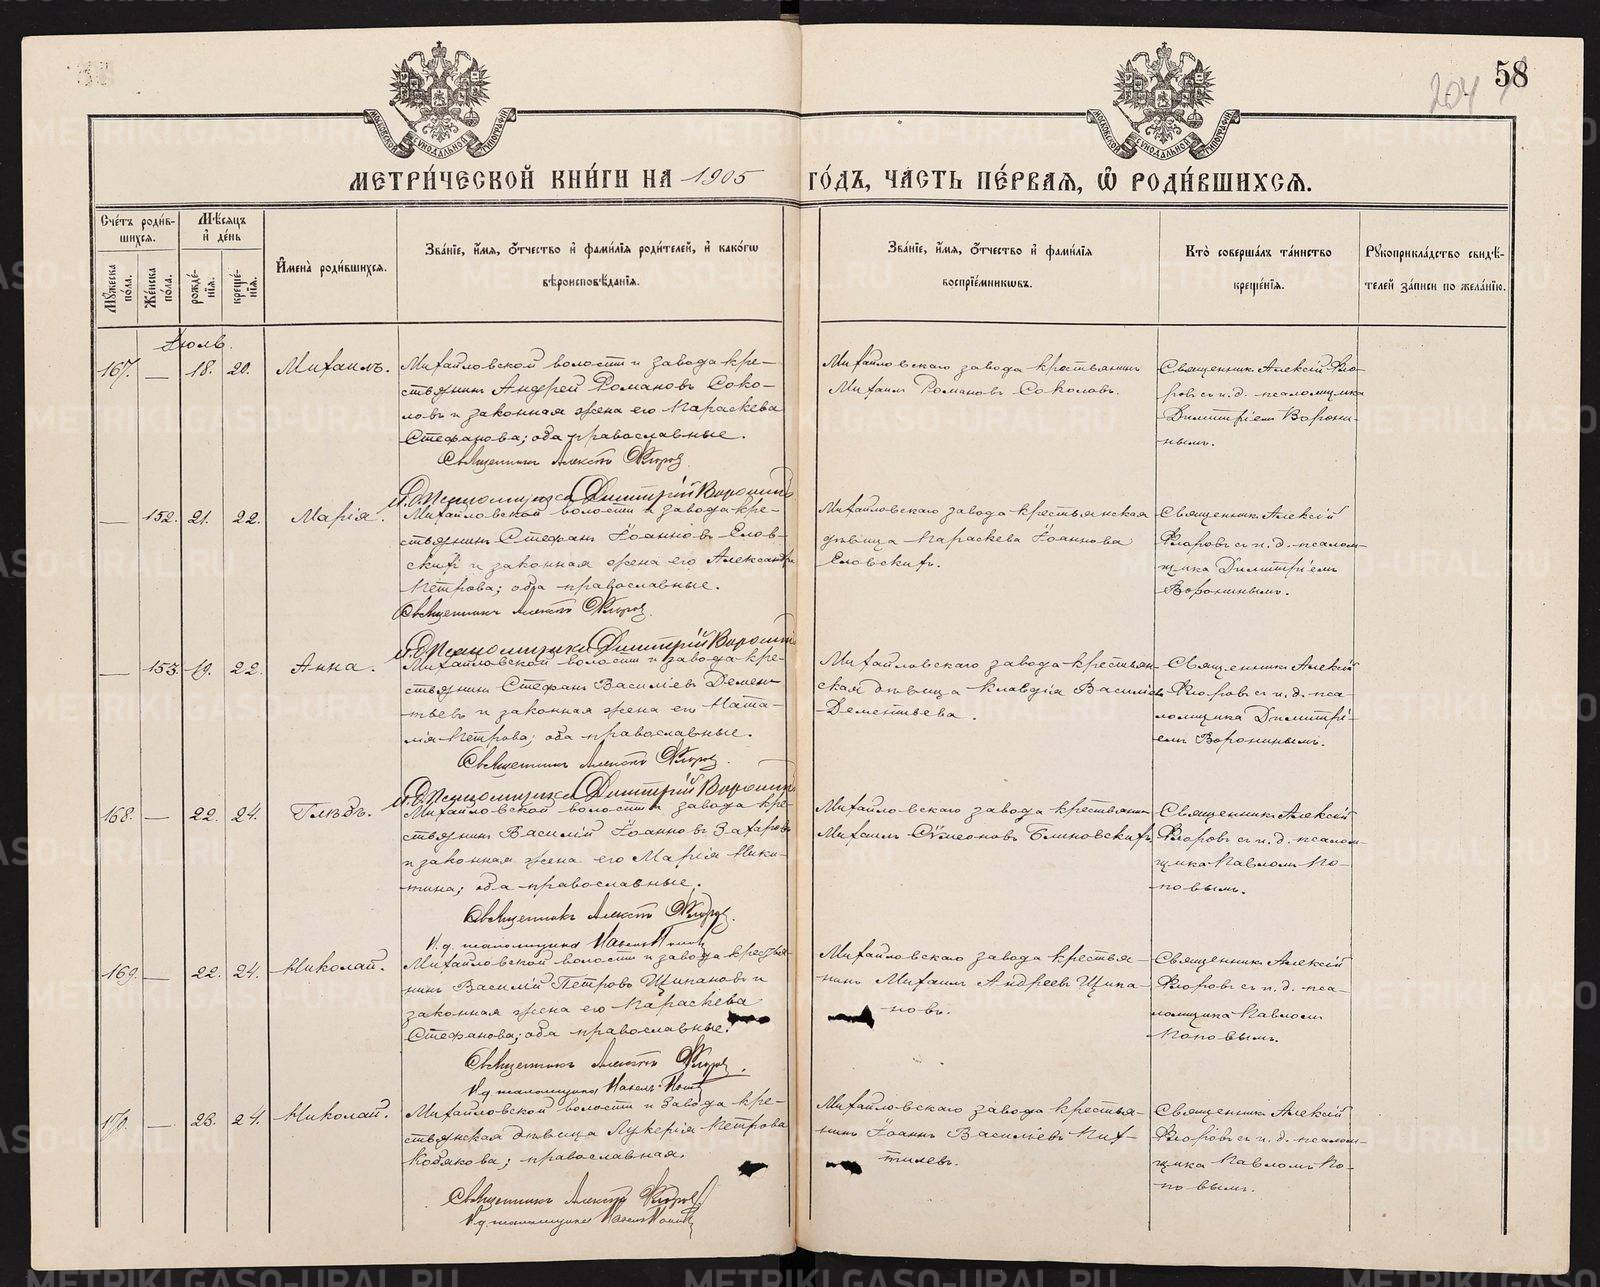 58
204
МЕТРИ́ЧЕСКОЙ КНИ́ГИ НА 1905 ГО́ДЪ, ЧА́СТЬ ПЕ́РВАЯ, Ѿ РОДИ́ВШИХСЯ.
Сче́тъ роди́в-
шихся.
Мѣ́сяцъ
и҆ де́нь
Мꙋ́жеска
по́ла.
Же́нска
по́ла.
рожде́-
нїя.
креще́-
нїя.
И҆мена̀ роди́вшихся.
Зва́нїе, и҆́мя, ѻ҆́тчество и҆ фами́лїя роди́телей, и҆ како́гѡ
вѣроисповѣ́данїя.
Зва́нїе, и҆́мя, ѻ҆́тчество и҆ фами́лїя
воспрїе́мникѡвъ.
Кто̀ соверша́лъ та́инство
креще́нїя.
Рꙋкоприкла́дство свидѣ́-
телей за́писи по жела́нїю.
Іюль.
167. — 18. 20. Михаилъ.
Михайловской волости и завода кре-
стьянинъ Андрей Романовъ Соко-
ловъ и законная жена его Параскева
Стефанова; оба православные.
Священникъ Алексій Флоровъ
И. д. псаломщика Димитрій Воронинъ
Михайловскаго завода крестьянинъ
Михаилъ Романовъ Соколовъ.
Священникъ Алексій Фло-
ровъ съ и. д. псаломщика
Димитріемъ Ворони-
нымъ.
— 152. 21. 22. Марія.
Михайловской волости и завода кре-
стьянинъ Стефанъ Іоанновъ Елов-
скихъ и законная жена его Александра
Петрова; оба православные.
Священникъ Алексій Флоровъ
И. д. псаломщика Димитрій Воронинъ
Михайловскаго завода крестьянская
дѣвица Параскева Іоаннова
Еловскихъ.
Священникъ Алексій
Флоровъ съ и. д. псалом-
щика Димитріемъ
Воронинымъ.
— 153. 19. 22. Анна.
Михайловской волости и завода кре-
стьянинъ Стефанъ Василіевъ Демен-
тьевъ и законная жена его Ната-
лія Петрова; оба православные.
Священникъ Алексій Флоровъ
И. д. псаломщика Димитрій Воронинъ
Михайловскаго завода крестьян-
ская дѣвица Клавдія Василіев
Дементьева.
Священникъ Алексій
Флоровъ съ и. д. пса-
ломщика Димитрі-
емъ Воронинымъ.
168. — 22. 24. Глѣбъ.
Михайловской волости и завода кре-
стьянинъ Василій Іоанновъ Захаровъ
и законная жена его Марія Ники-
тина; оба православные.
Священникъ Алексій Флоровъ.
И. д. псаломщика Павелъ Поповъ
Михайловскаго завода крестьянинъ
Михаилъ Сѵмеоновъ Блиновскихъ.
Священникъ Алексій
Флоровъ съ и. д. псалом-
щика Павломъ По-
повымъ.
169. — 22. 24. Николай.
Михайловской волости и завода крестья-
нинъ Василій Петровъ Щипановъ и
законная жена его Параскева
Стефанова; оба православные.
Священникъ Алексій Флоровъ.
И. д. псаломщика Павелъ Поповъ
Михайловскаго завода крестья-
нинъ Михаилъ Андреевъ Щипа-
новъ.
Священникъ Алексій
Флоровъ съ и. д. пса-
ломщика Павломъ
Поповымъ.
170. — 23. 24. Николай.
Михайловской волости и завода кре-
стьянская дѣвица Лукерія Петрова
Кобякова; православная.
Священникъ Алексій Флоровъ
И. д. псаломщика Павелъ Поповъ
Михайловскаго завода крестья-
нинъ Іоаннъ Василіевъ Пих-
тилевъ.
Священникъ Алексій
Флоровъ съ и. д. псалом-
щика Павломъ По-
повымъ.
METRIKI.GASO-URAL.RU